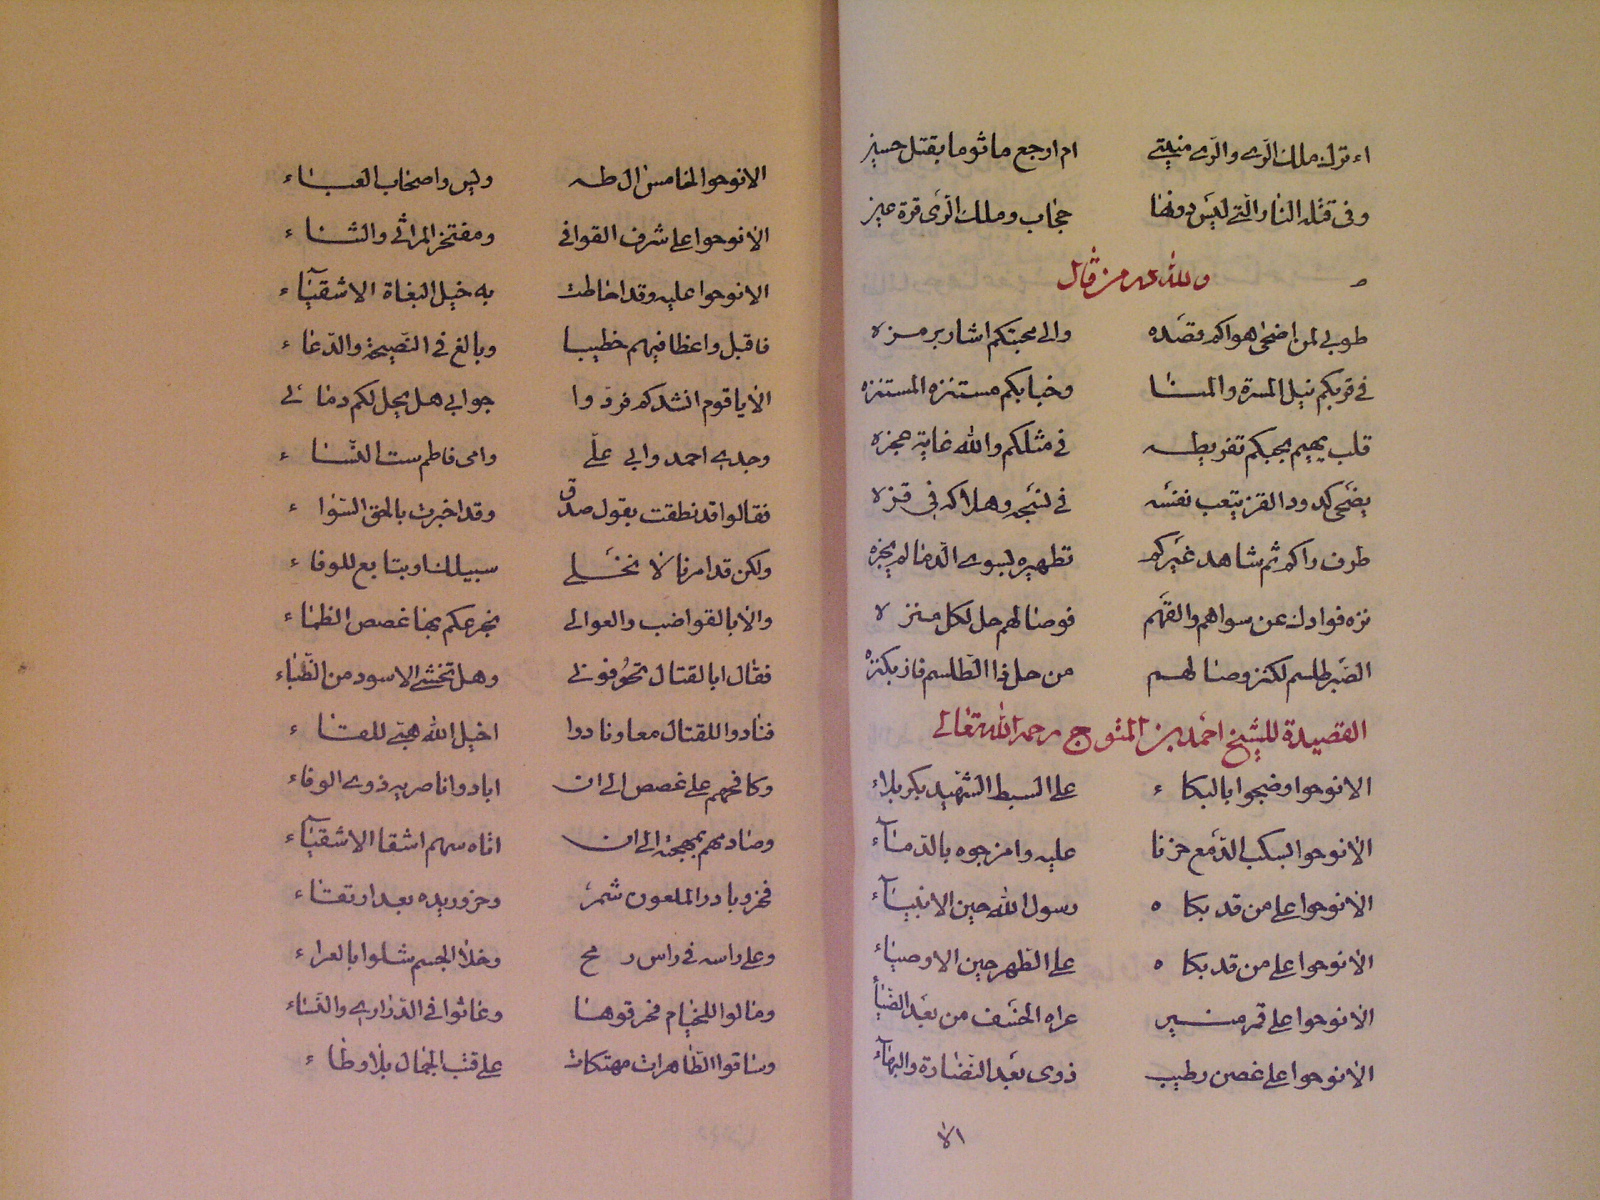 اء ترك ملك الري والري منيتي ام ارجع ماثوما بقتل حسين
وفي قتله النار التي ليس دونها حجاب وملك الري قرة عين
ولله در من قال
طوبى لمن اضحى هواكم قصده والى محبتكم اشار برمزه
في قربكم نيل المسرة والمنا وجنابكم مستنزه المستنزه
قلب يهيم بحبكم تفريطه في مثلكم والله غاية عجزه
يضحى كدود القز يتعب نفسه في نسجه وهلاكه في قزه
طرف راكم ثم شاهد غيركم تطهيره بسوى الدما لم يجزه
نزه فوادك عن سواهم والقهم فوصالهم حل لكل منزه
الصبر طلسم لكنز وصالهم من حل ذا الطلسم فاز بكنزه
القصيدة للشيخ احمد بن المتوج رحمه الله تعالى
الا نوحوا وضجوا بالبكاء على السبط الشهيد بكربلاء
الا نوحوا بسكب الدمع حزنا عليه وامزجوه بالدماء
الا نوحوا على من قد بكاه رسول الله خير الانبياء
الا نوحوا على من قد بكاه على الطهر خير الاوصياء
الا نوحوا على قمر منير عراه الخسف من بعد الضياء
الا نوحوا على غصن رطيب ذوى بعد النضارة والبهاء
الا
الا نوحوا لخامس ال طه ويس واصحاب العباء
الا نوحوا على شرف القوافي ومفتخر المراثي والثناء
الا نوحوا عليه وقد احاطت به خيل البغاة الاشقياء
فاقبل واعظا فيهم خطيبا وبالغ في النصيحة والدعاء
الا يا قوم انشدكم فردوا جوابي هل يحل لكم دمائي
وجدي احمد وابي علي وامي فاطم ست النساء
فقالوا قد نطقت بقول صدق وقد اخبرت بالحق السواء
ولكن قد امرنا لا نخلي سبيلك او بتابع للوفاء
والا بالقواضب والعوالي نجرعكم بها غصص الظماء
فقال ابا لقتال تخوفوني وهل تخشى الاسود من الظباء
فنادوا للقتال معا ونادوا اخيل الله هبي للقاء
وكافحهم على غصص الى ان ابادوا ناصريه ذوي الوفاء
وصادمهم بمهجته الى ان اتاه سهم اشقا الاشقياء
فخر وبادر الملعون شمر وحز وريده بعد ارتقاء
وعلى راسه في راس رمح وخلا الجسم شلوا بالعراء
ومالوا للخيام فحرقوها وعاثوا في الذراري والنساء
وساقوا الطاهرات مهتكات على قتب الجمال بلا وطاء